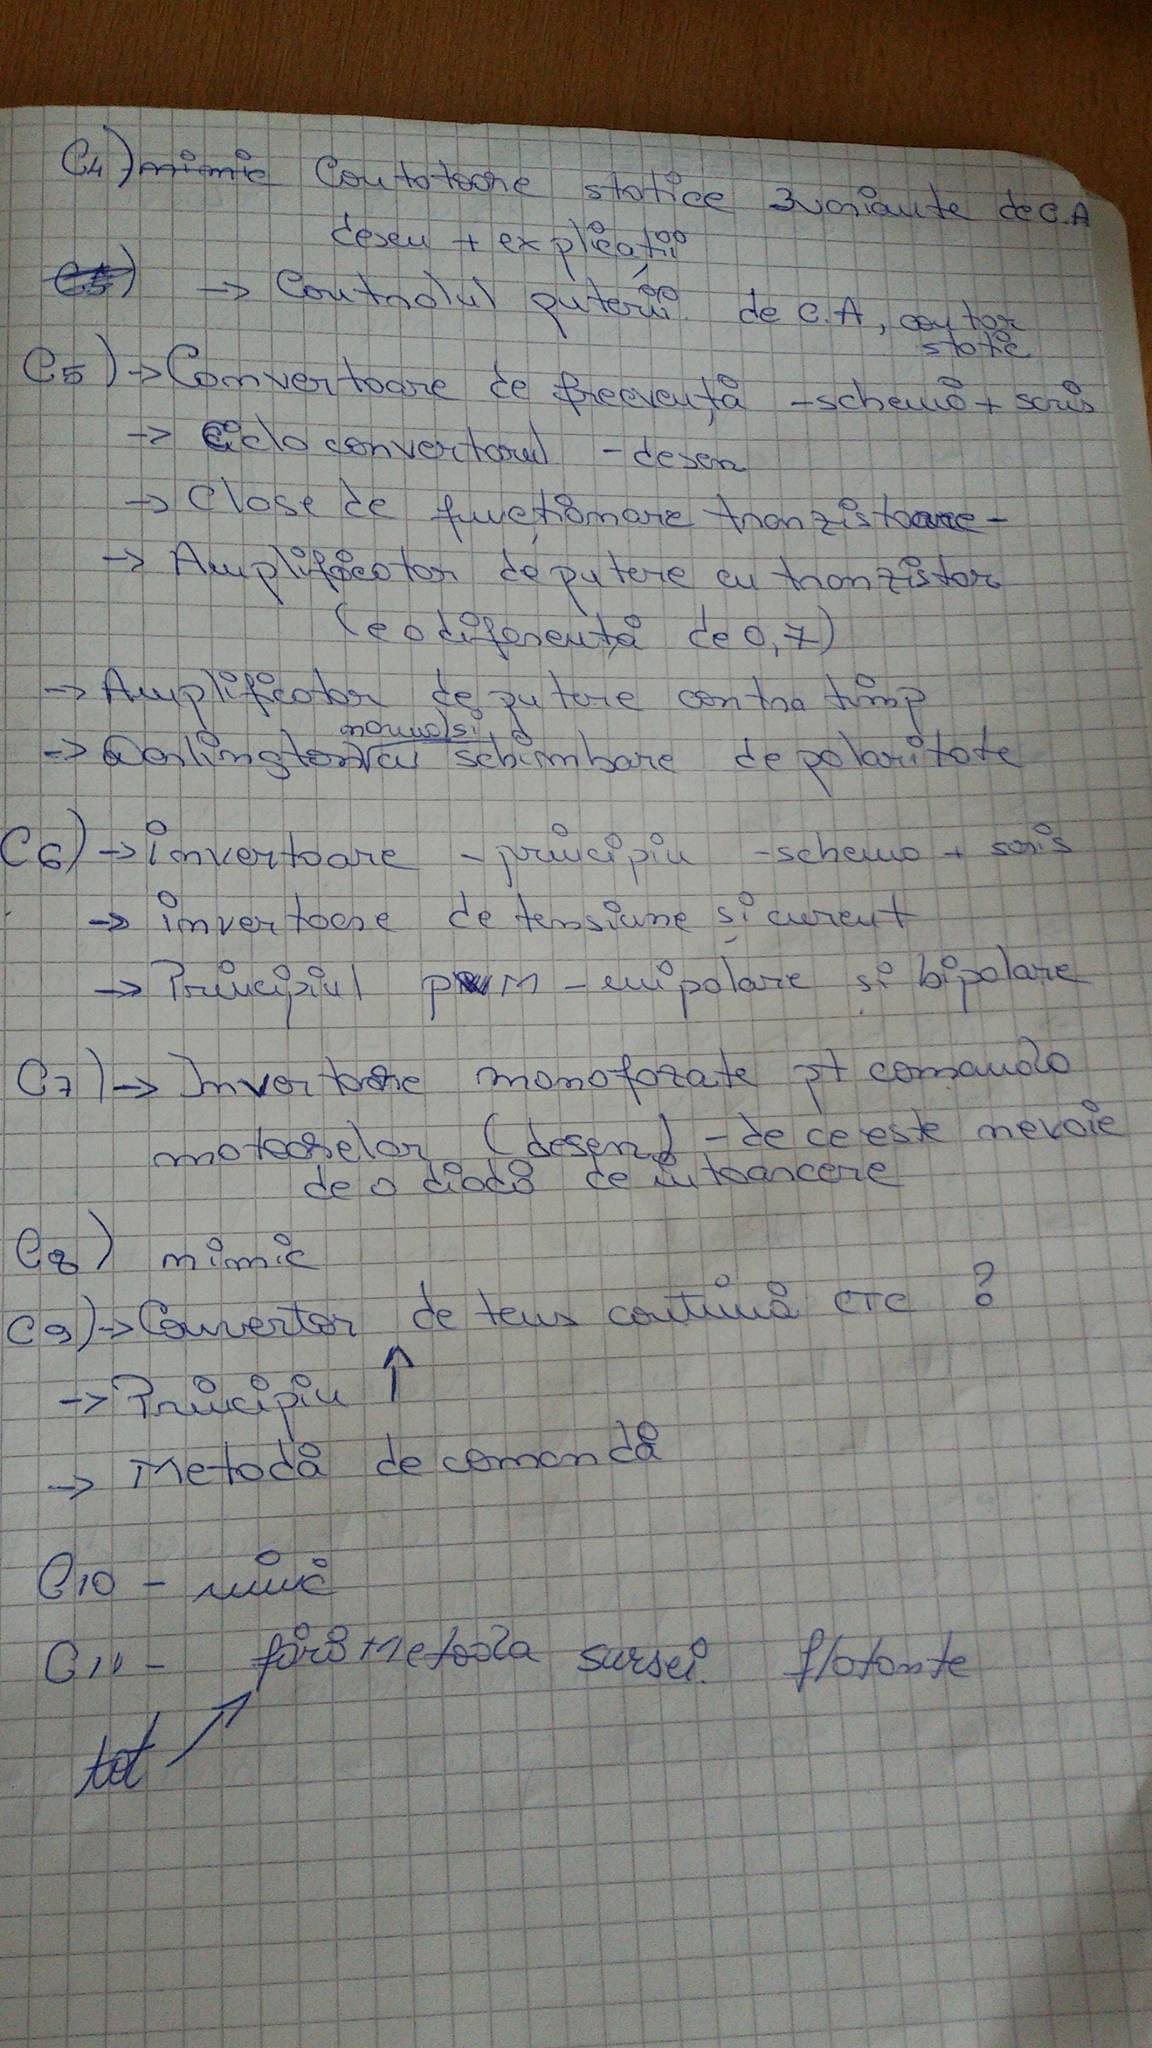 C4) nimic Contatoare statice 3 variante de C.A
desen + explicații
C5) → Controlul puterii de C.A, contor
static
C5) → Convertoare de frecvență - schemă + scris
→ Cicloconvertorul - desen
→ Clase de funcționare tranzistoare -
→ Amplificator de putere cu tranzistor
(e o diferență de 0,7)
→ Amplificator de putere contra timp
normal si
→ Darlington cu schimbare de polaritate
C6) → invertoare - principiu - schema + scris
→ invertoare de tensiune și curent
→ Principiul PWM - unipolare și bipolare
C7) → Invertoare monofazate pt comanda
motoarelor (desen) - de ce este nevoie
de o diodă de întoarcere
C8) nimic
C9) → Convertor de tens continuă CTC ?
→ Principiu ↑
→ Metodă de comandă
C10 - nimic
C11 - fără Metoda sursei flotante
tot